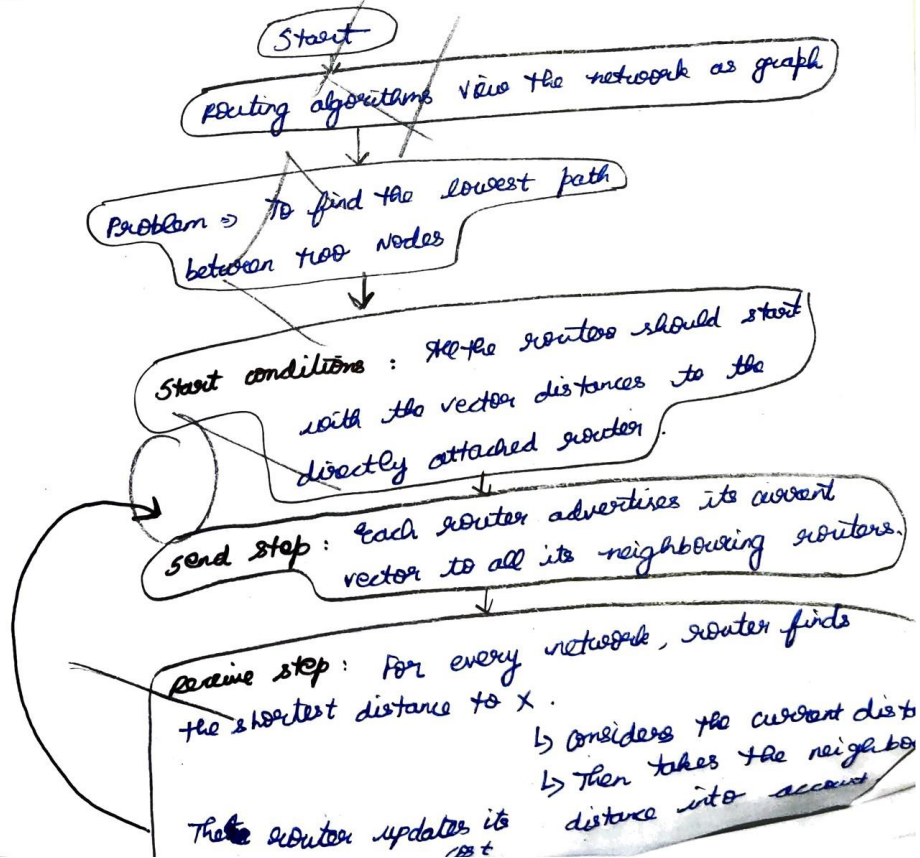 Start
Routing algorithms view the network as graph
Problem => To find the lowest path
between two Nodes
Start conditions : All the routers should start
with the vector distances to the
directly attached router.
Send step : Each router advertises its current
vector to all its neighbouring routers.
Receive step : For every network, router finds
the shortest distance to X.
↳ considers the current dist
↳ Then takes the neighbo
distance into account
The router updates its
cost